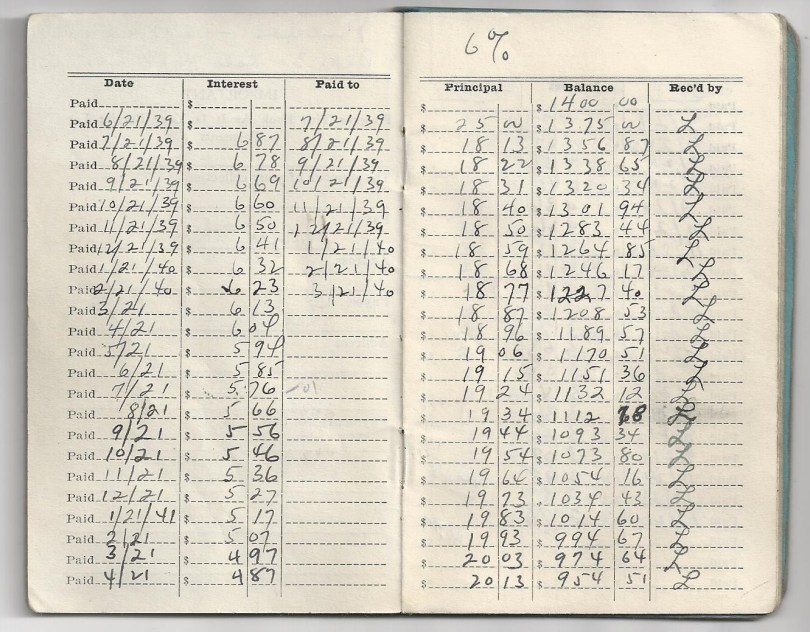 6%
Date Interest Paid to Principal Balance Rec'd by
Paid $ $ $ 1400 00
Paid 6/21/39 7/21/39 $ 25 00 $ 1375 00 L
Paid 7/21/39 $ 6 87 8/21/39 $ 18 13 $ 1356 87 L
Paid 8/21/39 $ 6 78 9/21/39 $ 18 22 $ 1338 65 L
Paid 9/21/39 $ 6 69 10/21/39 $ 18 31 $ 1320 34 L
Paid 10/21/39 $ 6 60 11/21/39 $ 18 40 $ 1301 94 L
Paid 11/21/39 $ 6 50 12/21/39 $ 18 50 $ 1283 44 L
Paid 12/21/39 $ 6 41 1/21/40 $ 18 59 $ 1264 85 L
Paid 1/21/40 $ 6 32 2/21/40 $ 18 68 $ 1246 17 L
Paid 2/21/40 $ 6 23 3/21/40 $ 18 77 $ 1227 40 L
Paid 3/21 $ 6 13 $ 18 87 $ 1208 53 L
Paid 4/21 $ 6 04 $ 18 96 $ 1189 57 L
Paid 5/21 $ 5 94 $ 19 06 $ 1170 51 L
Paid 6/21 $ 5 85 $ 19 15 $ 1151 36 L
Paid 7/21 $ 5 76 $ 19 24 $ 1132 12 L
Paid 8/21 $ 5 66 $ 19 34 $ 1112 78 L
Paid 9/21 $ 5 56 $ 19 44 $ 1093 34 L
Paid 10/21 $ 5 46 $ 19 54 $ 1073 80 L
Paid 11/21 $ 5 36 $ 19 64 $ 1054 16 L
Paid 12/21 $ 5 27 $ 19 73 $ 1034 43 L
Paid 1/21/41 $ 5 17 $ 19 83 $ 1014 60 L
Paid 2/21 $ 5 07 $ 19 93 $ 994 67 L
Paid 3/21 $ 4 97 $ 20 03 $ 974 64 L
Paid 4/21 $ 4 87 $ 20 13 $ 954 51 L